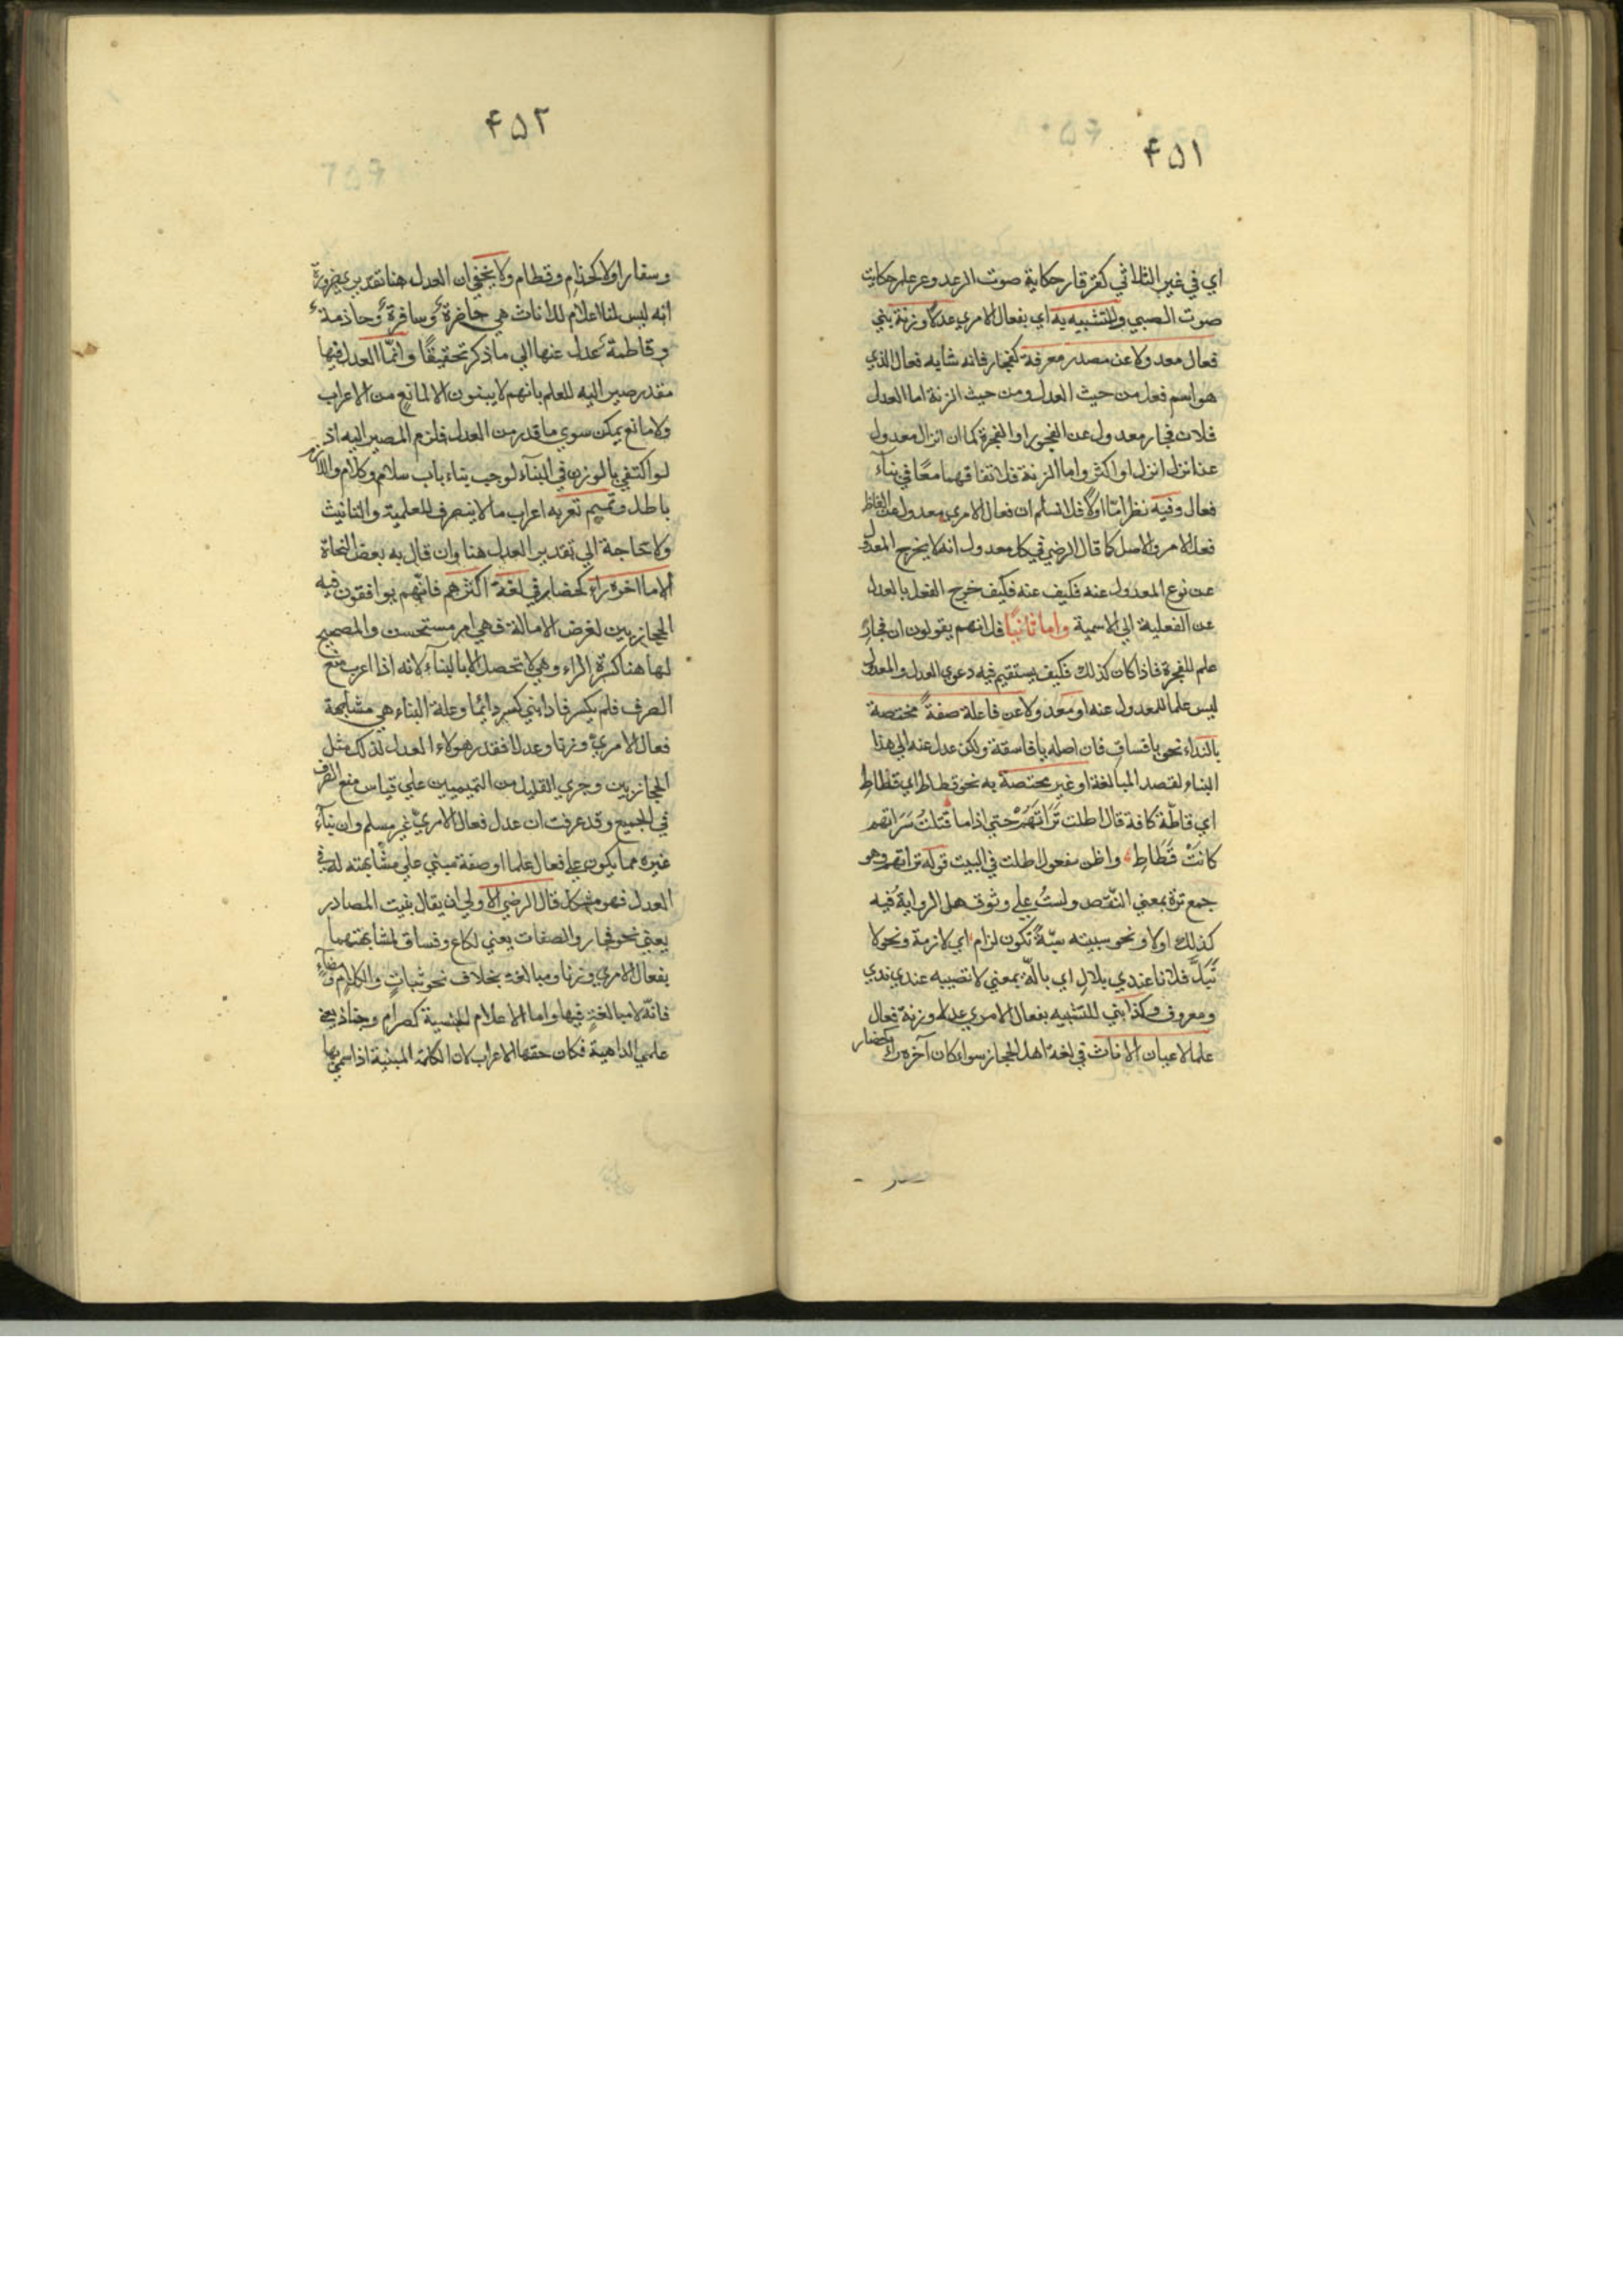 ۴۵۱
اي في غير الثلاثي كقرقار حكاية صوت الرعد وعرعار حكاية
صوت الصبي وللتشبيه به اي بفعال الامري عدلا وزنة بني
فعال معدولا عن مصدر معرفة كفجار فانه شابه فعال الذي
هو اسم فعل من حيث العدل ومن حيث الزنة اما العدل
فلان فجار معدول عن الفجور او الفجرة كما ان نزال معدول
عن انزل انزل او اكثر واما الزنة فلاتفاقهما معًا في بناء
فعال وفيه نظر امّا اولًا فلا نسلم ان فعال الامري معدول عن الفاظ
فعل الامر والاصل كما قال الرضي في كل معدول انه لا يخرج المعدول
عن نوع المعدول عنه فكيف عنه فكيف خرج الفعل بالعدل
عن الفعلية الي الاسمية واما ثانيًا فلانهم يقولون ان فجارِ
علم للفجرة فاذا كان كذلك فكيف يستقيم فيه دعوي العدل والمعدول
ليس علما للمعدول عنه او معدولا عن فاعلة صفةً مختصة
بالنداء نحو يا فساق فان اصله يا فاسقة ولكن عدل عنه الي هذا
البناء لقصد المبالغة او غير مختصة به نحو قطاط اي قطاطِ
اي قاطّة كافة قال اطلت تَرَاتَهُمْ حتي اذا ما قتلتُ سَرَاتهم
كانَتْ قَطَاطِ واظن مفعول اطلت في البيت قوله تراتهم وهو
جمع ترة بمعني النّقص ولستُ علي وثوق هل الرواية فيه
كذلك اولا ونحو سببته سبّةً تكون لزام اي لازمة ونحو لا
تَبُلَّ فلانا عندي بلالِ اي بالّة بمعني لا تصيبه عندي ندي
ومعروف وكذا بني للتشبيه بفعال الامري عدلا وزنة فعال
علما لاعيان الاناث في لغة اهل الحجاز سواء كان آخره راء كحضار
۴۵۲
وسفار اولا كحذام وقطام ولا يخفي ان العدل هنا تقديري ضرورة
انه ليس لنا اعلام للاناث هي حاضرة وسافرة وحاذمة
وقاطمة عدل عنها الي ما ذكر تحقيقًا وانمّا العدل فيها
مقدر صير اليه للعلم بانهم لا يبنون الا لمانع من الاعراب
ولا مانع يمكن سوي ما قدر من العدل فلزم المصير اليه اذ
لو اكتفي بالوزن في البناء لوجب بناء باب سلام وكلام واللازم
باطل وتميم تعربه اعراب ما لا ينصرف للعلمية والتانيث
ولا حاجة الي تقدير العدل هنا وان قال به بعض النحاة
الا ما اخره راء كحضار في لغة اكثرهم فانّهم يوافقون فيه
الحجازيين لغرض الامالة فهي امر مستحسن والمصحح
لها هنا كسرة الراء وهي لا تحصل الا بالبناء لانه اذا اعرب منع
الصرف فلم يكسر فاذا بني كسر دائمًا وعلة البناء هي مشابهة
فعال الامري وزنا وعدلا فقدر هولاء العدل لذلك مثل
الحجازيين وجري القليل من التميميين علي قياس منع الصرف
في الجميع وقد عرفت ان عدل فعال الامريّ غير مسلم وان بناء
غيره مما يكون علي فعال علما او صفة مبني علي مشابهته له في
العدل فهو مشكل قال الرضي الاولي ان يقال بنيت المصادر
يعني نحو فجار والصفات يعني لكاع وفساق لمشابهتهما
بفعال الامري وزنا ومبالغة بخلاف نحو ثباتٍ والكلام ومضاءٍ
فانّه لا مبالغة فيها واما الاعلام الجنسية كصرام
علمي الداهية فكان حقها الاعراب لان الكلمة المبنية اذا سمي بها